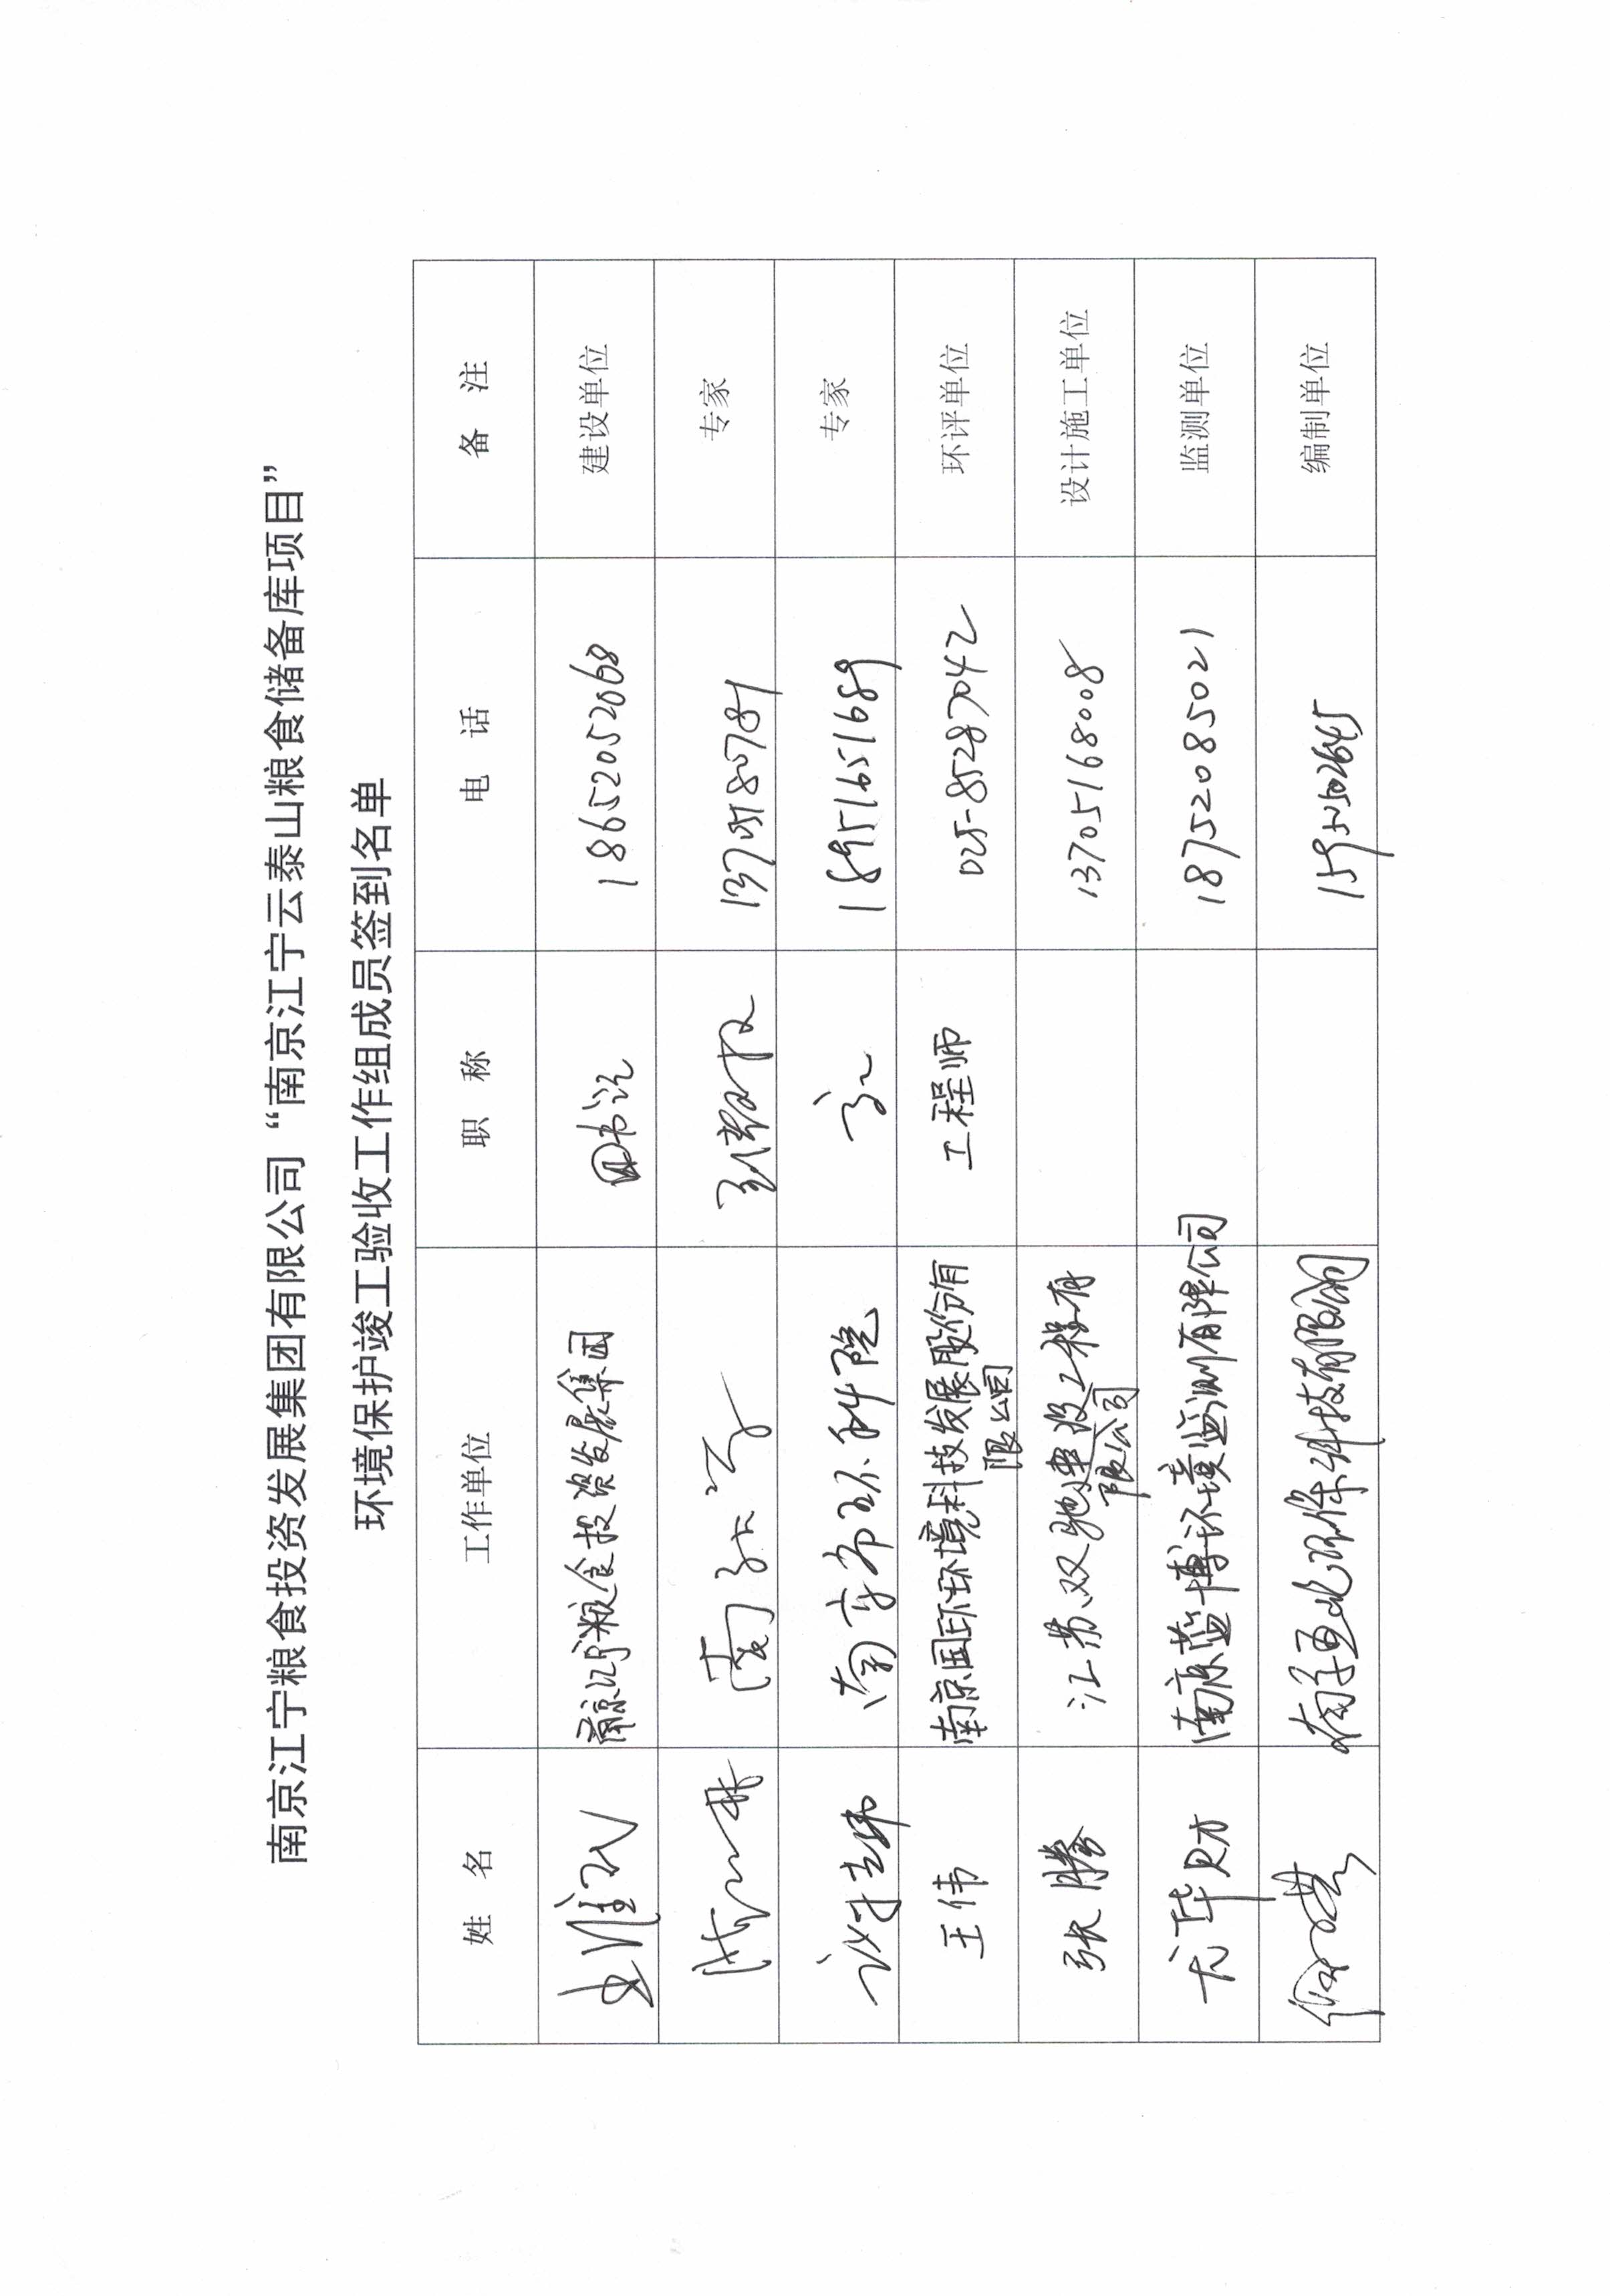 南京江宁粮食投资发展集团有限公司“南京江宁云泰山粮食储备库项目”
环境保护竣工验收工作组成员签到名单
姓 名 工作单位 职 称 电 话 备 注
南京江宁粮食投资发展集团 副书记 18652052068 建设单位
专家
南京市环科院 18951651689 专家
王伟 南京国环环境科技发展股份有 工程师 025-85287042 环评单位
限公司
张腾 江苏双驰建设工程有 13705168008 设计施工单位
限公司
尤华财 南京蓝博环境监测有限公司 18752085021 监测单位
科技有限公司 编制单位